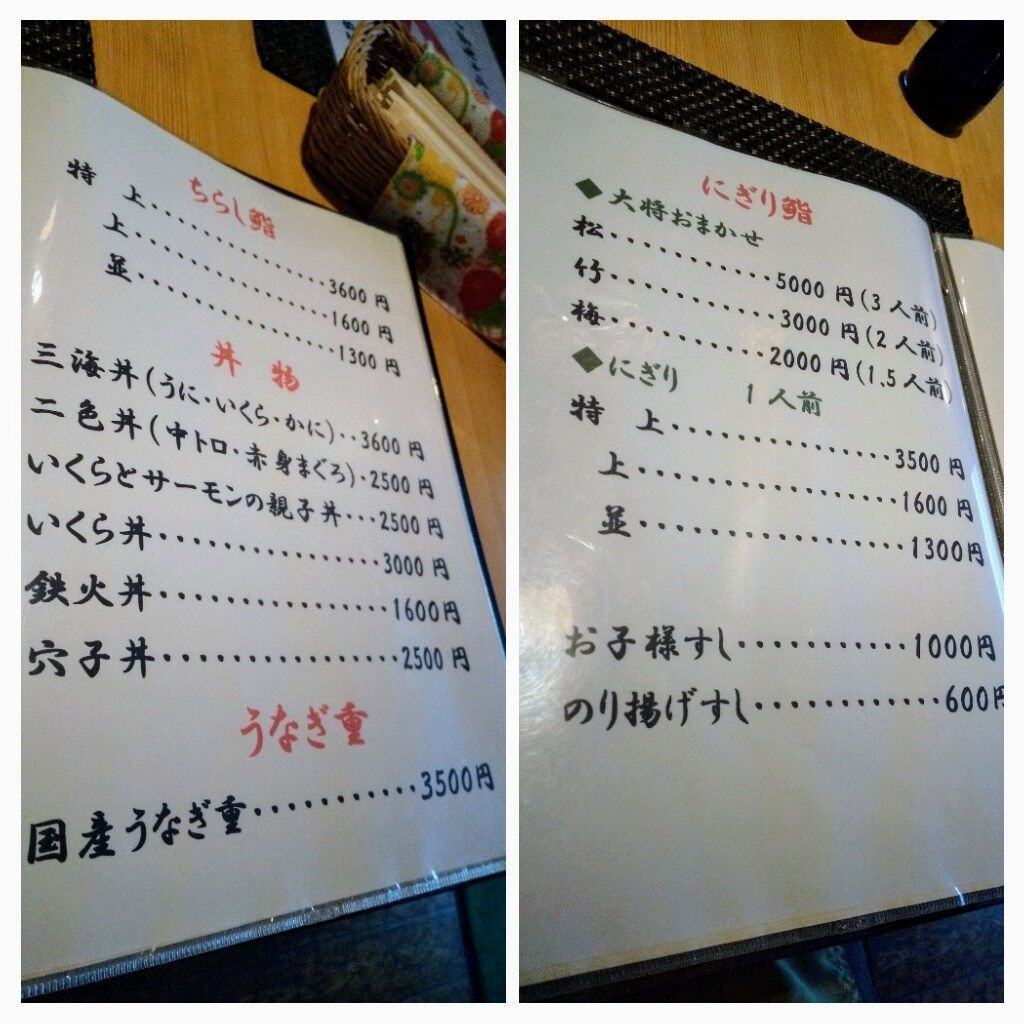 ちらし鮨
特 上・・・・・・・・・・・・・・・3600 円
上・・・・・・・・・・・・・・・・・1600 円
並・・・・・・・・・・・・・・・・・1300 円
丼 物
三海丼(うに・いくら・かに)・・3600 円
二色丼(中トロ・赤身まぐろ)・2500 円
いくらとサーモンの親子丼・・・2500 円
いくら丼・・・・・・・・・・・・・・・3000 円
鉄火丼・・・・・・・・・・・・・・・・1600円
穴子丼・・・・・・・・・・・・・・・・2500 円
うなぎ重
国産うなぎ重・・・・・・・・・・・3500円
にぎり鮨
◆大将おまかせ
松・・・・・・・・・・・5000 円(3 人前)
竹・・・・・・・・・・・3000 円(2 人前)
梅・・・・・・・・・・・2000 円(1.5 人前)
◆にぎり 1 人前
特 上・・・・・・・・・・・・・・・3500 円
上・・・・・・・・・・・・・・・・・1600 円
並・・・・・・・・・・・・・・・・・1300円
お子様すし・・・・・・・・・・・1000円
のり揚げすし・・・・・・・・・・・・600円